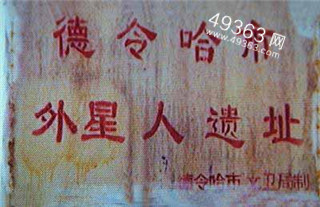 49363网
www.49363.com
德令哈市
外星人遗址
德令哈市文卫局制